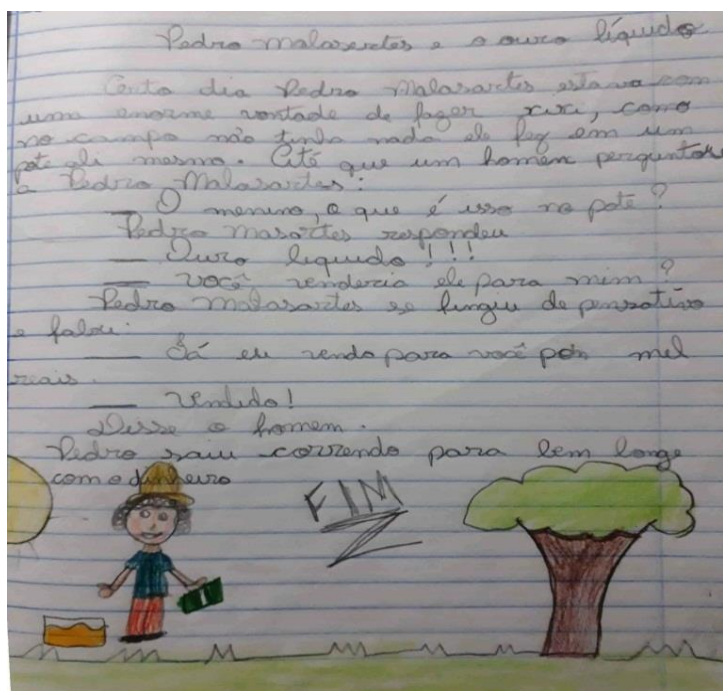 Pedro malasertes e o ouro líquido
Certo dia Pedro Malasartes estava com
uma enorme vontade de fazer xixi, como
no campo não tinha nada ele fez em um
pote ali mesmo. Até que um homem perguntou
a Pedro Malasartes:
— O menino, o que é isso no pote?
Pedro Masartes respondeu
— Ouro liquido!!!
— você venderia ele para mim?
Pedro Malasartes se fingiu de pensativo
e falou:
— Tá eu vendo para você por mil
reais.
— Vendido!
Disse o homem.
Pedro saiu correndo para bem longe
com o dinheiro
FIM